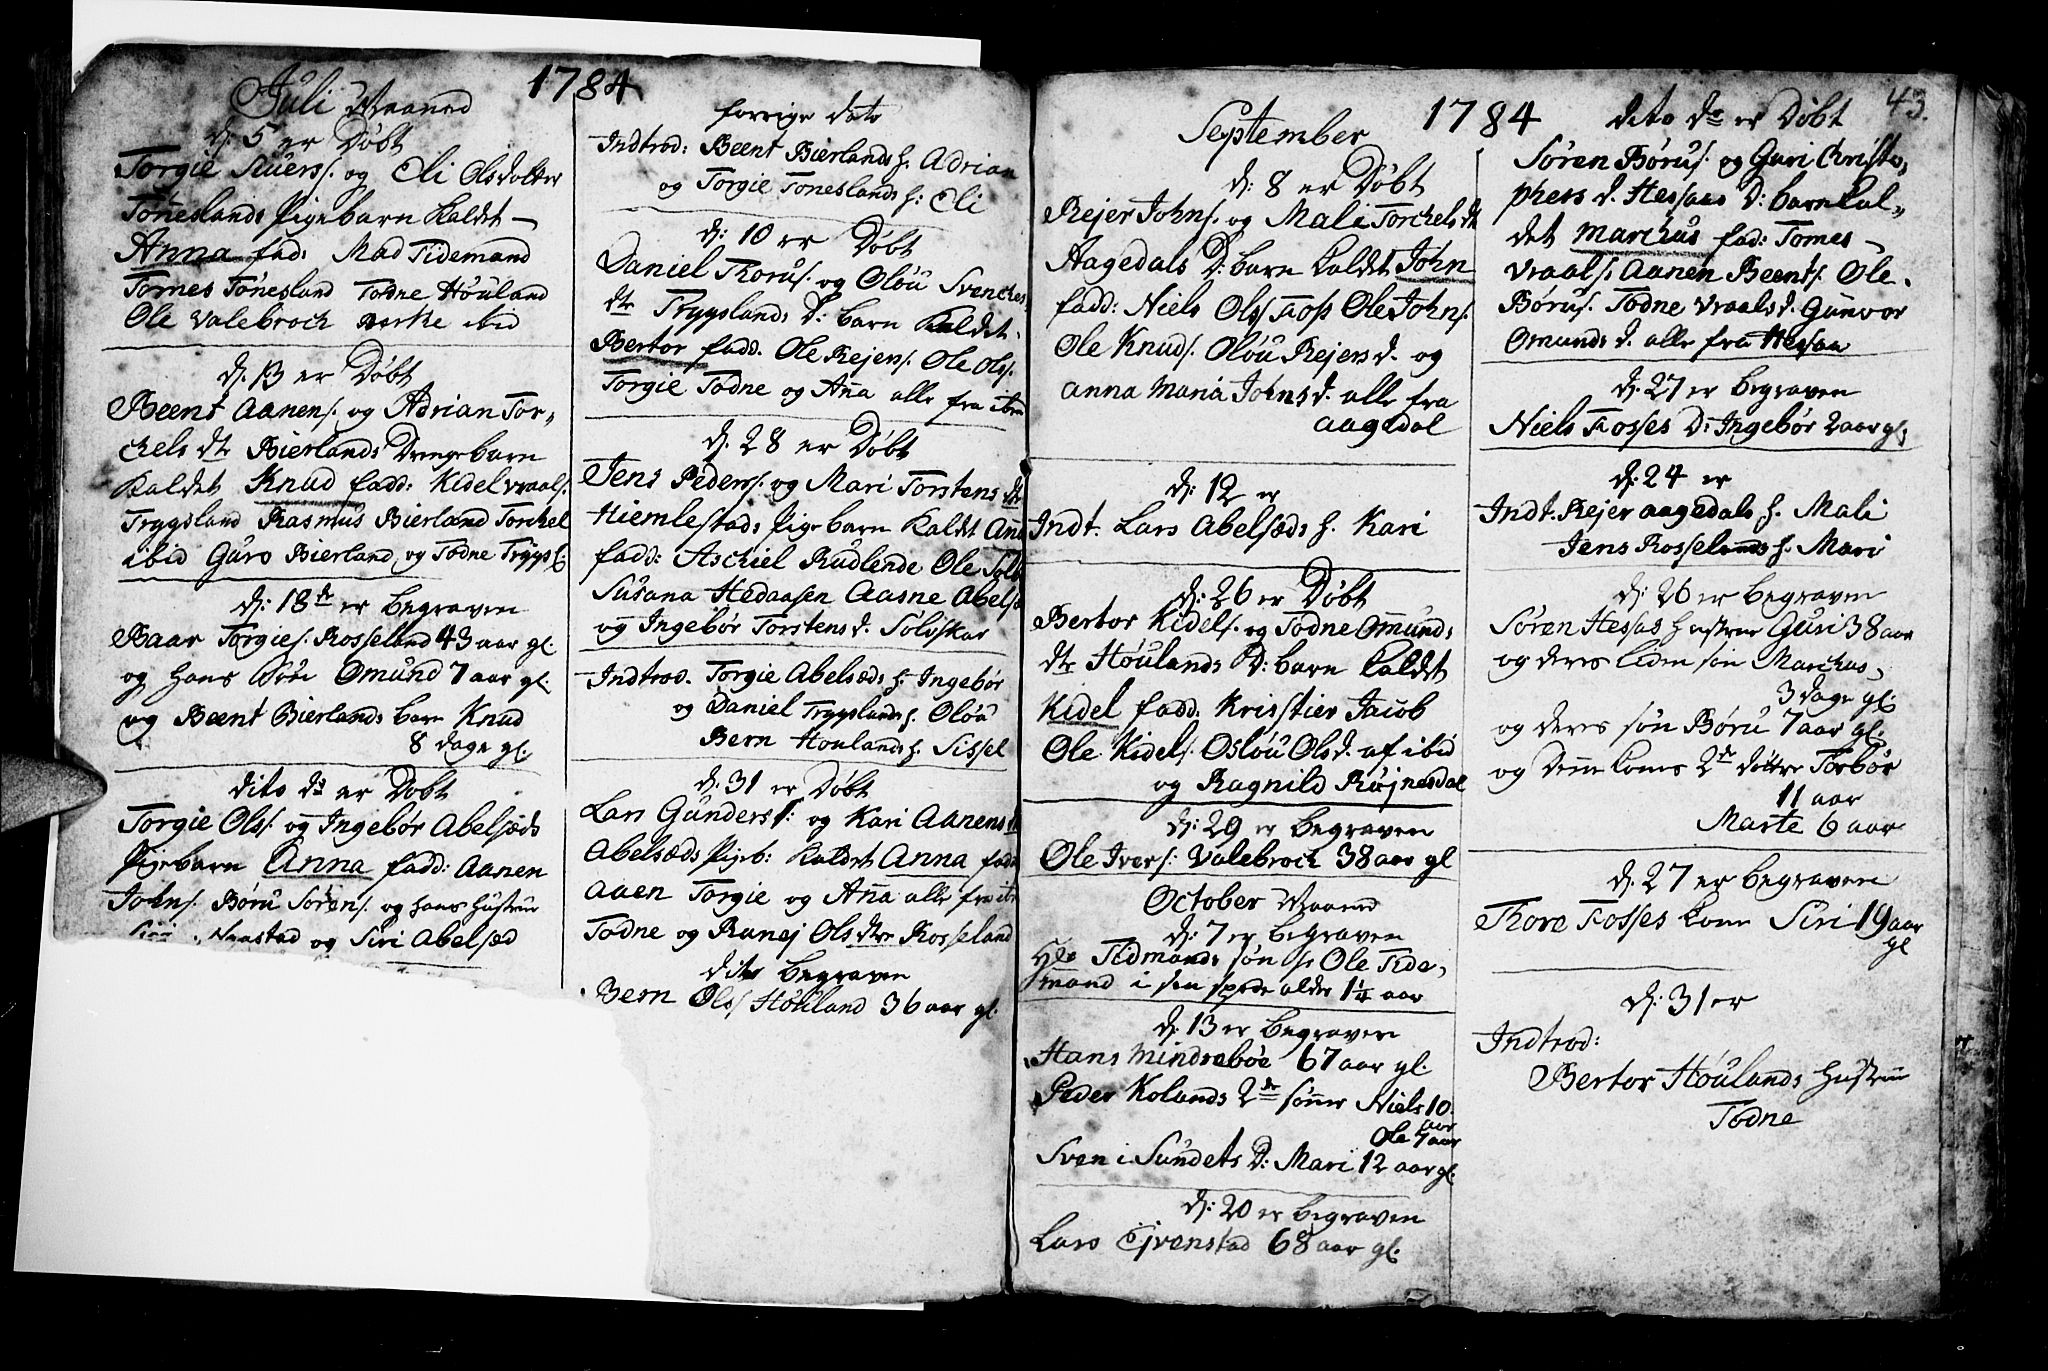 1784
Juli Maaned
d. 5 er Døbt
Torgie Siuers/. og Eli Olsdatter
Tønneslands Pigebarn Kaldet
Anna fad: Mad Tidemand
Tomes Tønesland Todne Høuland
Ole Valebroch ibid
d. 13 er Døbt
Beent Aanens/. og Adrian Tor-
chels dtr Bierlands Drengebarn
Kaldet Knud fadd: Kidel Vraals/.
Trygsland Rasmus Bierland Torchel
ibid Guro Bierland og Todne Trygsl:
d: 18de er begraven
Baar Torgies/. Rosseland 43 aar gl.
og hans Omund 7 aar gl.
og Beent Bierlands barn Knud
8 dage gl.
dito do er Døbt
Torgie Ols/. og Ingebør Abelsæds
Pigebarn Anna fadd: Aanen
Johns/. Børu Sørens/. og hans hustrue
og Siri Abelsæd
forrige dato
Indtrod: Beent Bierlands h. Adrian
og Torgie Toneslands h: Eli
d: 10 er Døbt
Daniel Thorus/. og Oløu Svenches
dtr Trygslands D: barn Kaldet
Bertor fadd. Ole Rejers/. Ole Ols/.
Torgie Todne og Anna alle fra ibm
d. 28 er Døbt
Jens Peders/. og Mari Torstens dtr
Hiemlestads Pigebarn Kaldet Anna
fadd: Aschiel Rudlende Ole
Susana Hedaasen Aasne Abelsæ
og Ingebør Torstens d. Soløskar
Indtrod. Torgie Abelsæds h. Ingebør
og Daniel Trygslands h. Oløu
Bern Houlands h. Sissel
d. 31 er Døbt
Lars Gunders/: og Kari Aanens d
Abelsæds Pigeb: Kaldet Anna fadd
Aaen Torgie og Anna alle fra ibm
Todne og Ranej Olsdtre Rosseland
dito begraven
Bern Ols/ Høuland 36 aar gl.
1784
September
d: 8 er Døbt
Rejer Johns/. og Mali Torchels dtr
Aagedals D: barn Kaldet John
fadd: Niels Ols/ Foss Ole Johns/.
Ole Knuds/. Oløu Rejers d. og
Anna Maria Johns d. alle fra
Aagedal
d: 12 er
Indt. Lars Abelsæds h. Kari
d: 26 er Døbt
Bertor Kidels/. og Todne Omunds
dtr Høulands D: barn Kaldet
Kidel fadd. Kristier Jacob
Ole Kidels/. Osløu Ols d. af ibid
og Ragnild Røjnesdal
d: 29 er begraven
Ole Ivers/: Valebroch 38 aar gl
October Maaned
d: 7 er begraven
Hr Tidmands søn Ole Tide-
mand i sin spæde alder 1¼ aar
d. 13 er begraven
Hans Mindrebøe 67 aar gl.
Peder Kolands 2de sønner Niels 10 aar
Ole 7 aar
Sven i Sundets D: Mari 12 aar gl.
d: 20 er begraven
Lars Ejvenstad 68 aar gl.
43.
dito do er Døbt
Søren Børus/. og Guri Christo-
phers d. Hessaas D: barn Kal-
det Marchus fad: Tomes
Vraals/: Aanen Beents/. Ole
Børus/. Todne Vraals d. Gunvor
Omunds d. alle fra Hessaa
d: 27 er begraven
Niels Fosses D: Ingebør 2 aar gl;
d: 24 er
Indt. Rejer Aagedals h. Mali
Jens Rosselands h. Mari
d: 26 er begraven
Søren Hesaas hustrue Guri 38 aar
og deres liden søn Marchus
3 dage gl.
og deres søn Børu 7 aar gl.
og Denne Kones 2de døttre Torbør
11 aar
Marte 6 aar
d. 27 er begraven
Thore Fosses Kone Siri 19 aar
gl
d: 31 er
Indtrod:
Bertor Høulands hustrue
Todne